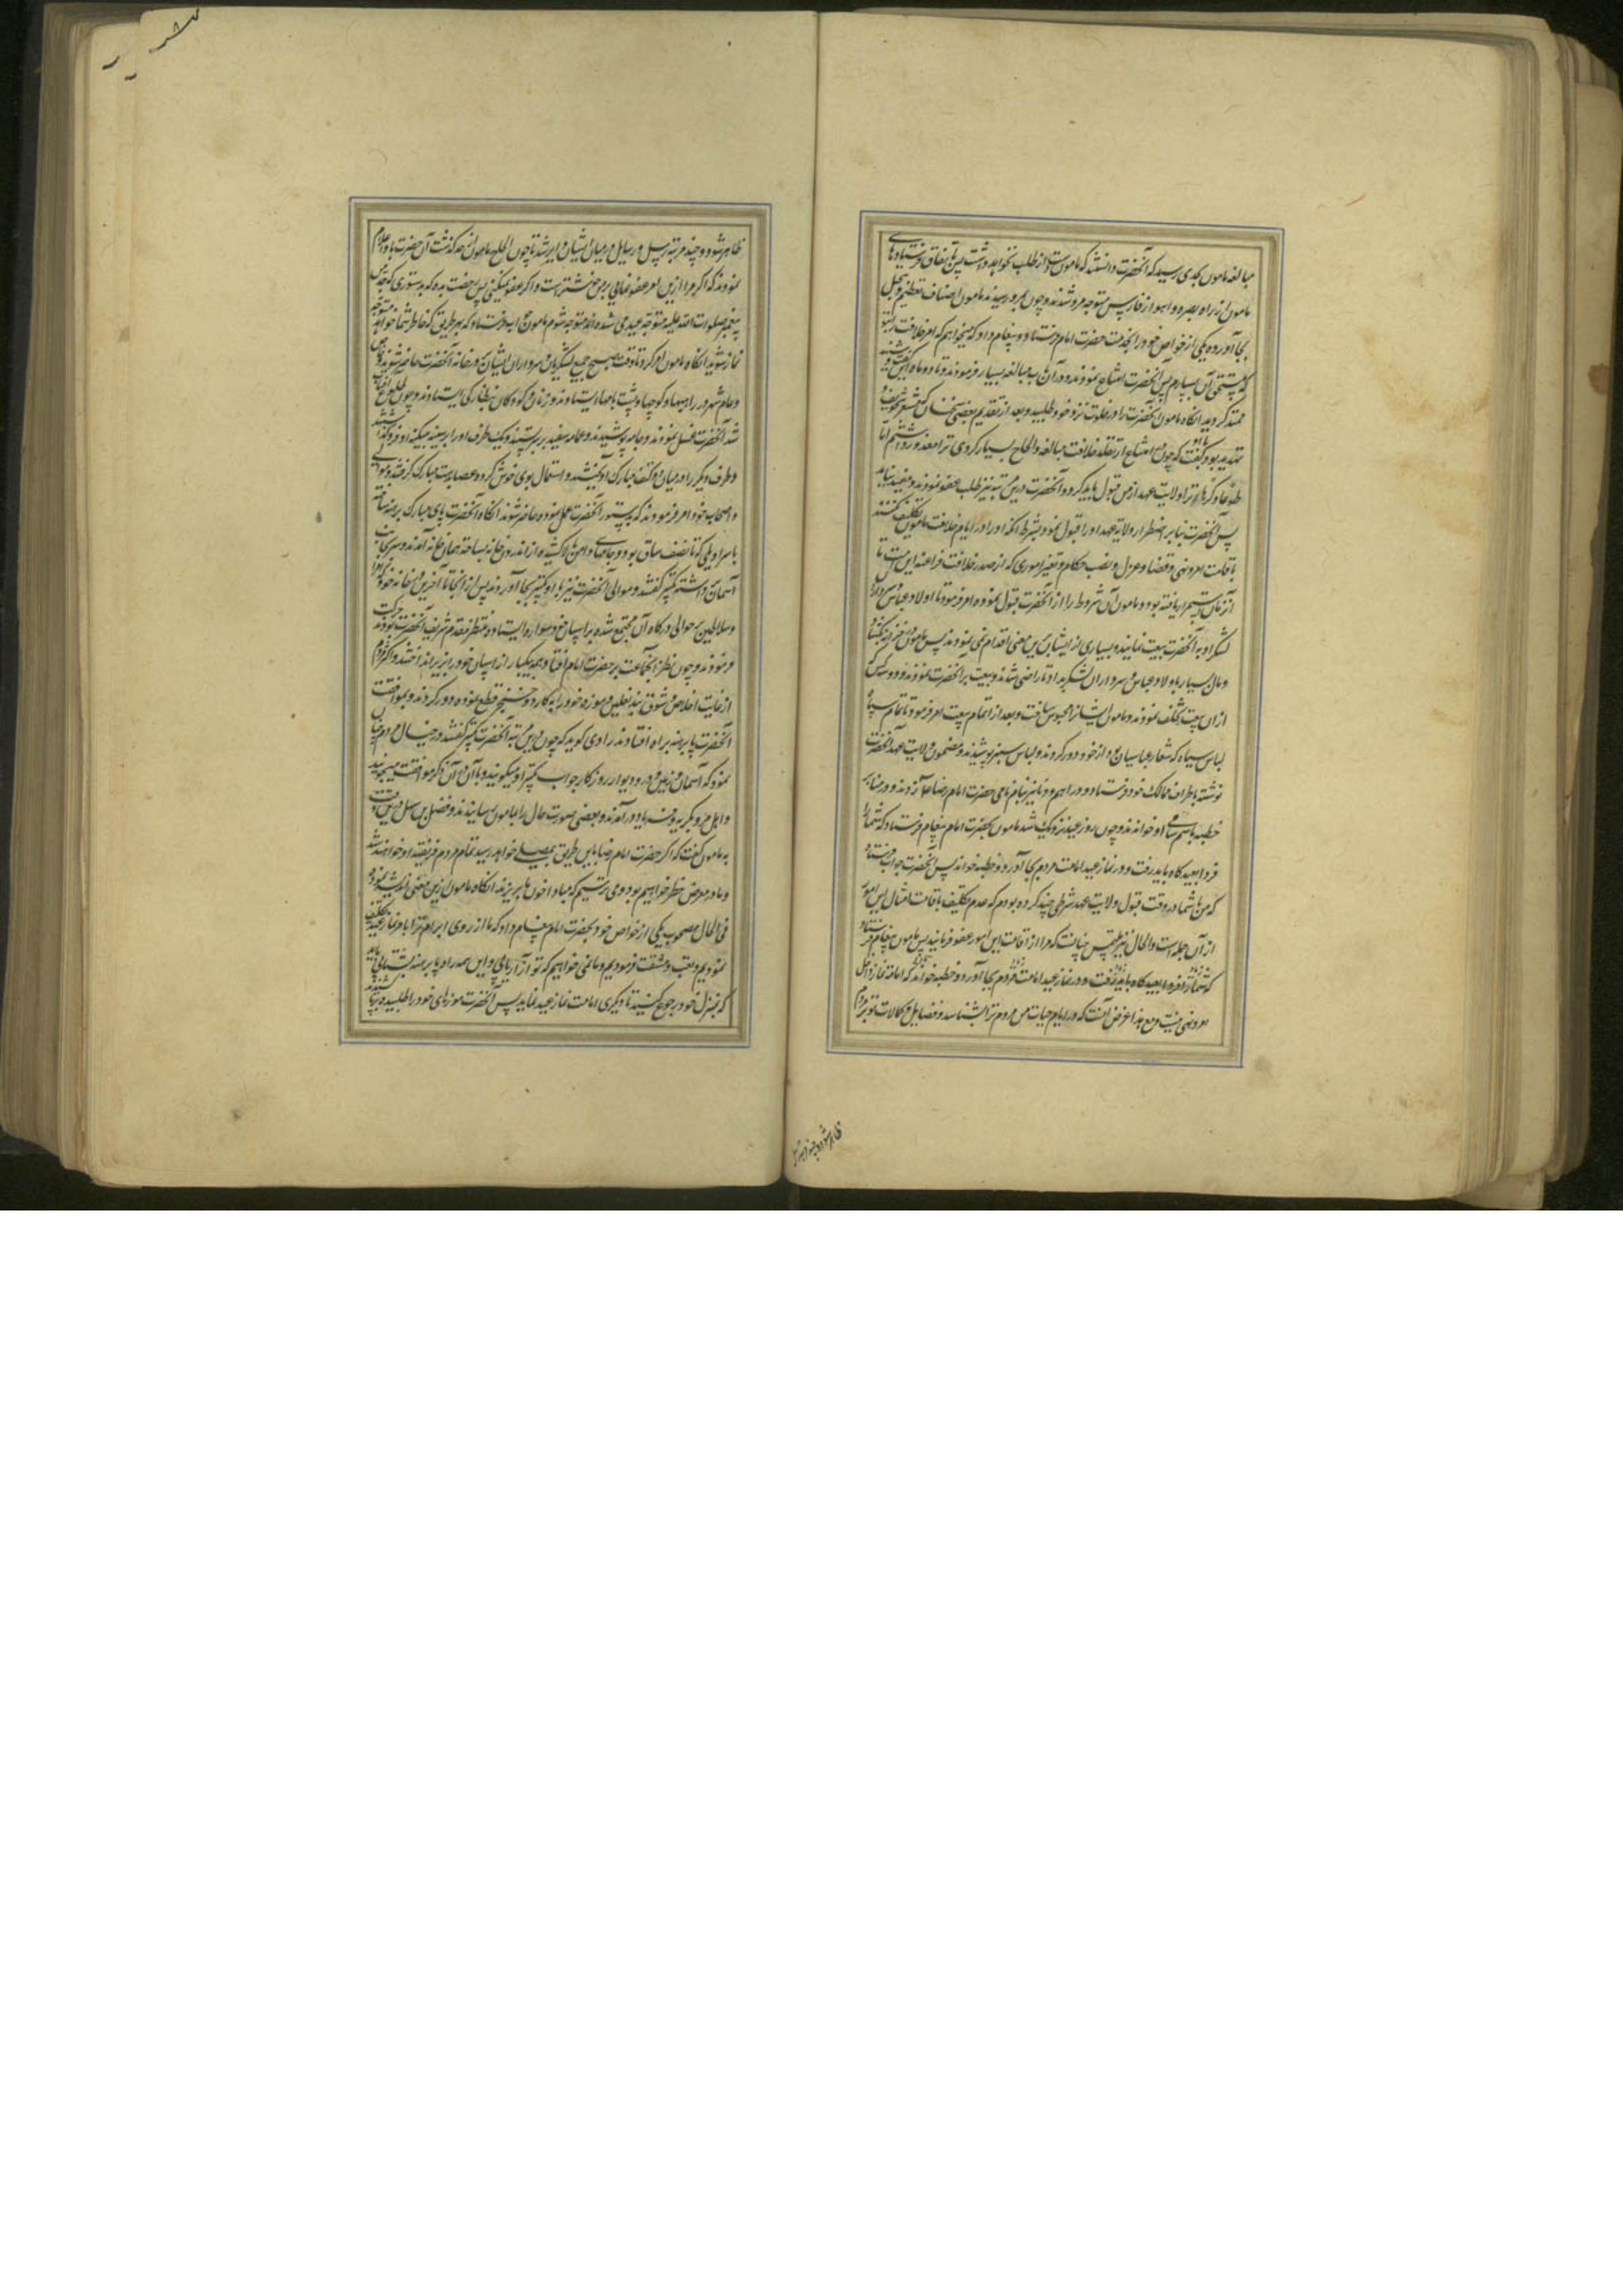 مبالغه مامون بحدی رسید که آنحضرت دانستند که مامون دست از طلب نخواهد داشت پس باتفاق فرستادهای
مامون از راه بصره و اهواز و فارس متوجه مرو شدند و چون بمرو رسیدند مامون اصناف تعظیم و تبجیل
بجا آورده یکی از خواص خود را بخدمت حضرت امام فرستاد و پیغام داد که میخواهم که امر خلافت را بتو
که مستحق آن بسپارم پس آنحضرت امتناع نمودند و در آن باب مبالغه بسیار فرمودند و تا دو ماه این گفت و
ممتد کردید آنکاه مامون آنحضرت را در خلوت نزد خود طلبید و بعد از تقدیم بعضی سخنان که مشعر بتخویف و
تهدید بود گفت که چون امتناع از تقلد خلافت مبالغه و الحاح بسیار کردی ترا معذور داشتیم اما
طوعا و کرها ترا ولایت عهد از من قبول باید کرد و آنحضرت درین مرتبه نیز طلب عفو نمودند و مفید نیامد
پس آنحضرت بنابر اضطرار ولایت عهد او را قبول نمود بشرط آنکه او را در ایام خلافت مامون تکلیف نکنند
باقامت امر و نهی و قضا و عزل و نصب حکام و تغیر اموری که از صدر خلافت فراعنه این امت تا
آنزمان استمرار یافته بود و مامون آن شروط را از آنحضرت قبول نموده امر فرمود تا اولاد عباس و سرداران
لشکر او به آنحضرت بیعت نمایند و بسیاری از ایشان باین معنی اقدام نمی نمودند پس مامون در خزاین بکشاد
و مال بسیار باولاد عباس و سرداران لشکر بداد تا راضی شدند و بیعت بر آنحضرت نمودند و دو سه کس
از آن بیعت تخلف نمودند و مامون ایشانرا محبوس ساخت و بعد از اتمام بیعت امر فرمود تا تمام سپاه
لباس سیاه که شعار عباسیان بود از خود دور کردند و لباس سبز پوشیدند و مضمون ولایت عهد آنحضرت
نوشته باطراف ممالک خود فرستاد و دراهم و دنانیر بنام نامی حضرت امام رضا زدند و در منابر
خطبه باسم سامی او خواندند و چون روز عید نزدیک شد مامون بحضرت امام پیغام فرستاد که شما را
فردا بعیدکاه باید رفت و در نماز عید امامت مردم بجا آورد و خطبه خواند پس آنحضرت جواب فرستاد
که من با شما در وقت قبول ولایت عهد شرطی چند کرده بودم که عدم تکلیف باقامت امثال این امور
از آن جمله است و الحال نیز ملتمس چنانست که مرا از اقامت این امور عفو فرمایند پس مامون پیغام فرستاد
که شما را فردا بعیدکاه باید رفت و در نماز عید امامت مردم بجا آورد و خطبه خواند که امامت نماز داخل
امر و نهی نیست و مع هذا غرض آنست که در ایام حیات من مردم ترا بشناسند و فضایل و کمالات تو بر مردم
ظاهر شود و چند مرتبه رسل و رسایل در میان ایشان دایر شد تا چون الحاح مامون از حد گذشت آن حضرت باو اعلام
نمودند که اگر مرا ازین امر عفو نمایی بر من خوشتر است و اگر عفو نمیکنی پس رخصت بده که بدستوری که جد من
پیغمبر صلوات الله علیه متوجه عیدگاه می شده اند متوجه شوم مامون جواب فرستاد که بهر طریق که خاطر شما خواهد متوجه
نماز شوید آنکاه مامون امر کرد تا وقت صبح جمیع لشکریان و سرداران ایشان در خانه آنحضرت حاضر شوند و خاص
و عام شهر در راهها و کوچها و پشت بامها ایستادند و زنان و کودکان بنظارگی ایستادند و چون طلوع آفتاب
شد آنحضرت غسل نمودند و جامه پوشیدند و عمامه سفید بر سر بستند و یک طرف او را بر سینه بیکینه او فروگذاشتند
و طرف دیگر را در میان دو کتف مبارک آویختند و استعمال بوی خوش کرده و عصا بدست مبارک گرفتند و موالی
و اصحاب خود امر فرمودند که بدستور آنحضرت عمل نموده حاضر شوند آنکاه آنحضرت پای مبارک برهنه ساخته
با سراویلی که تا نصف ساق بود و جامهای دامن بالا کشیده از اندرون خانه بساحت همان خانه آمدند و سر بجانب
آسمان داشته تکبیر گفتند و موالی آنحضرت نیز با او تکبیر بجا آوردند پس از آنجا تا آخر خانه خود
و سلاطین در حوالی درگاه آن مجتمع شده بر اسپان خود سوار و ایستاده منتظر مقدم شریف آنحضرت بودند حرکت
فرمودند و چون نظر آنجماعت بر حضرت امام افتاد همه بیکبار از اسپان خود را بزیر انداختند و اکثر مردم
از غایت اخلاص و شوق بند نعلین و موزه خود را بکارد و خنجر قطع نموده دور کردند و بموافقت
آنحضرت پا برهنه براه افتادند راوی گوید که چون درین مرتبه آنحضرت تکبیر گفتند در خیال مردم چنان
نمود که آسمان و زمین و در و دیوار روزگار جواب تکبیر او میگویند و با آن در آن ذکر موافقت میجویند
و اهل مرو بگریه و فریاد در آمدند و بعضی صورت حال را بمامون رسانیدند و فضل بن سهل درین وقت
به مامون گفت که اگر حضرت امام رضا باین طریق بمصلی خواهد رسید تمام مردم فریفته او خواهند شد
و ما در معرض خطر خواهیم بود و می ترسیم که مبادا خونها بریزند آنکاه مامون ازین معنی اندیشه نموده
فی الحال مصحوب یکی از خواص خود بحضرت امام پیغام داد که ما از روی ابرام ترا بامر نماز عید تکلیف
نمودیم و تعب و مشقت فرمودیم و ما نمی خواهیم که تو آزار یابی و این همه راه پا برهنه بشتابی باید
که بمنزل خود رجوع کنید تا دیگری امامت نماز عید نماید پس آنحضرت موزهای خود را طلبیده بپا
ظاهر شود و چند مرتبه